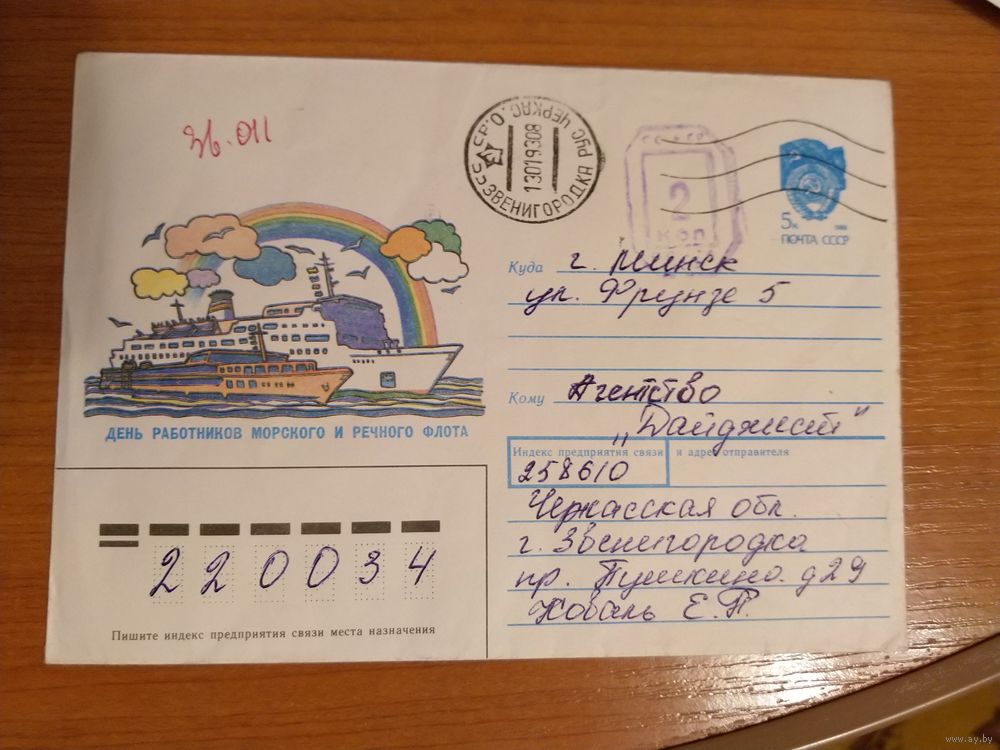 Зв. 011
УССР. О. ЗВЕНИГОРОДКА РУС ЧЕРКАС.
13019308
СССР
2
КОП
5к
1988
ПОЧТА СССР
Куда г. Минск
ул. Фрунзе 5
Кому Агентство
„Дайджест"
ДЕНЬ РАБОТНИКОВ МОРСКОГО И РЕЧНОГО ФЛОТА
Индекс предприятия связи и адрес отправителя
258610
Черкасская обл.
г. Звенигородка
пр. Пушкина д 29
Коваль Е.П.
220034
Пишите индекс предприятия связи места назначения
www.ay.by